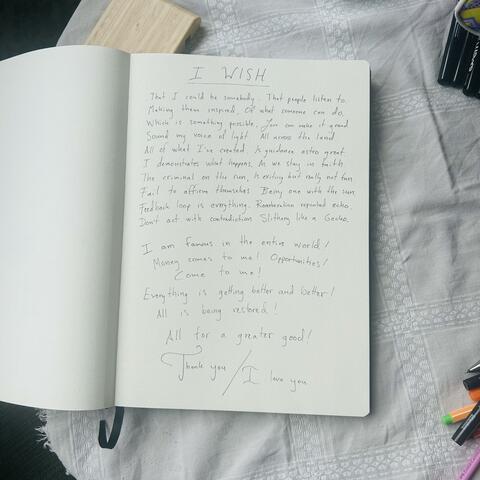 I WISH
That I could be somebody. That people listen to.
Making them inspired, Of what someone can do.
Which is something possible, You can make it grand
Sound my voice of light All across the land
All of what I've created. Is guidance astro great.
I demonstrates what happens, As we stay in faith.
The criminal on the run, Is exiting but really not fun
Fail to affirm themselves Being one with the sun
Feedback loop is everything. repeated echo.
Don't act with contradiction Slithing like a Gecko.
I am famous in the entire world!
Money comes to me! Opportunities!
Come to me!
Everything is getting better and better!
All is being restored!
All for a greater good!
Thank you / I love you